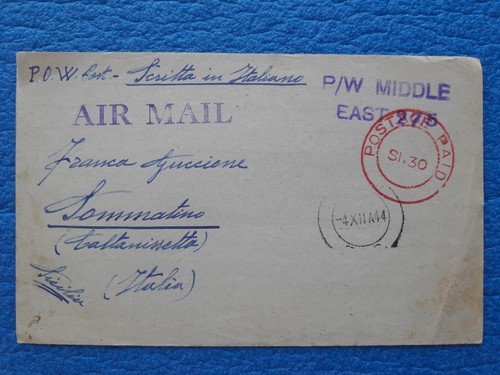 P.O.W. Post - Scritta in Italiano
P/W MIDDLE
EAST 275
AIR MAIL
POSTAGE PAID
SI.30
Franca Guccione
Sommatino
-4XII A44
(Caltanissetta)
Sicilia
(Italia)